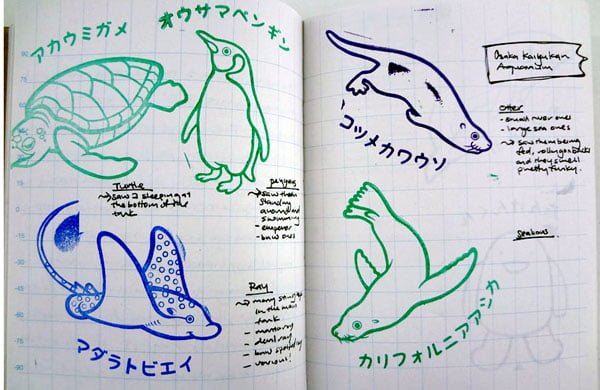 アカウミガメ
オウサマペンギン
Turtle
→ saw 2 sleeping at
the bottom of the
tank
penguins
→ saw them
standing
around and
swimming
- emperor
マダラトビエイ
Ray
→ many
in the main
tank
- manta ray
- devil ray
- various!
コツメカワウソ
Osaka Kaiyukan
Aquarium
Otter
- small river ones
- large sea ones
→ saw them being
fed,
and they smell
pretty funky.
カリフォルニアアシカ